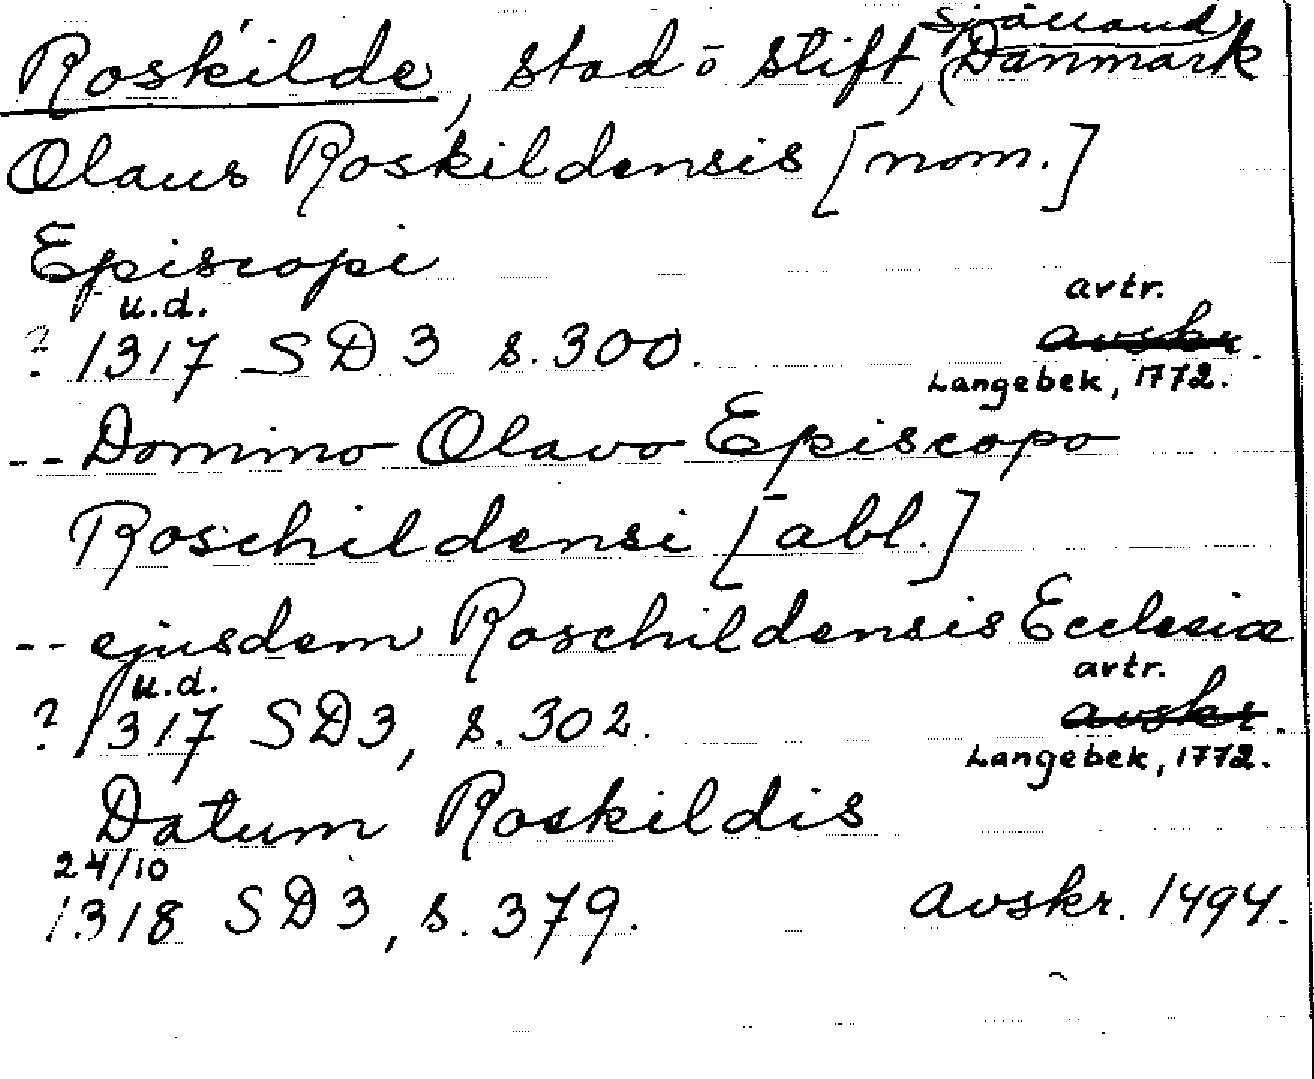 Sjælland,
Roskilde, stad o stift, (Danmark
Olaus Roskildensis [nom.]
Episcopi
u.d. avtr.
? 1317 SD 3 s. 300. avskr.
Langebek, 1772.
-- Domino Olavo Episcopo
Roschildensi [abl.]
-- ejusdem Roschildensis Ecclesiæ
u.d. avtr.
? 1317 SD3, s. 302. avskr.
Langebek, 1772.
Datum Roskildis
24/10
1318 SD3, s. 379. avskr. 1494.